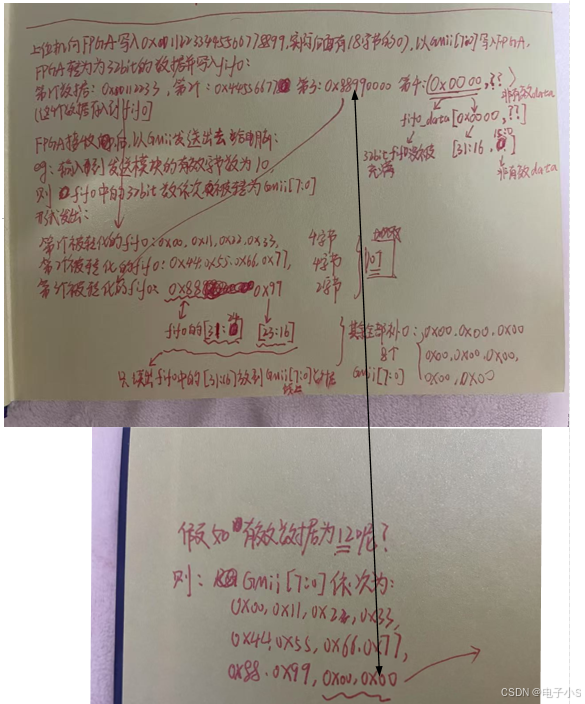 上位机向FPGA写入0x00112233445566778899,实际(后面有18字节的0),以Gmii[7:0]写入FPGA,
FPGA转为为32bit的数据并写入fifo:
第1个数据:0x00112233,第2个:0x44556677 第3:0x88990000 第4:(0x0000,??)
(这个数据存入到fifo) 非有效data
fifo_data[0x0000,??]
FPGA接收 后,以Gmii发送出去
32bit fifo没被充满 [31:16, 15:0]
非有效data
eg:输入到发送模块的有效字节数为10,
则 fifo中的32bit数依次被转为Gmii[7:0]
形式发出:
第1个被转化的fifo:0x00,0x11,0x22,0x33, 4字节
第2个被转化的fifo:0x44,0x55,0x66,0x77, 4字节 10个
第3个被转化的fifo:0x88 0x99 2字节
fifo的[31:24] [23:16]
其余全部补0:0x00,0x00,0x00
8个 0x00,0x00,0x00,
Gmii[7:0] 0x00,0x00
只读出fifo中的[31:16]放到Gmii[7:0]数据
线上
假如有效数据为12呢?
则: Gmii[7:0]依次为:
0x00,0x11,0x22,0x33,
0x44,0x55,0x66,0x77,
0x88,0x99,0x00,0x00
CSDN @电子小S